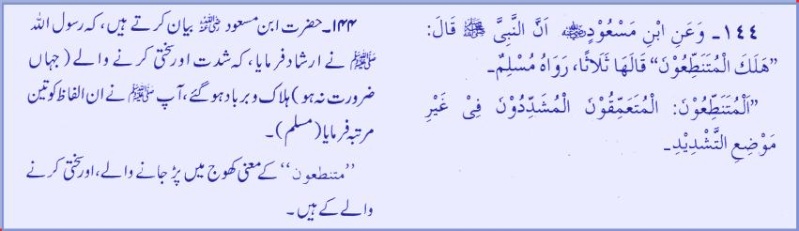 ١٤٤۔ وَعَنِ ابْنِ مَسْعُوْدٍ رضی اللہ عنہ اَنَّ النَّبِیَّ ﷺ قَالَ:
”هَلَكَ الْمُتَنَطِّعُوْنَ“ قَالَهَا ثَلَاثًا، رَوَاهُ مُسْلِمٌ۔
”اَلْمُتَنَطِّعُوْنَ: الْمُتَعَمِّقُوْنَ الْمُشَدِّدُوْنَ فِیْ غَيْرِ
مَوْضِعِ التَّشْدِيْدِ۔
۱۴۴۔ حضرت ابن مسعود ﷺ بیان کرتے ہیں، کہ رسول اللہ
ﷺ نے ارشاد فرمایا، کہ شدت اور سختی کرنے والے (جہاں
ضرورت نہ ہو) ہلاک و برباد ہو گئے، آپ ﷺ نے ان الفاظ کو تین
مرتبہ فرمایا (مسلم)۔
’’متنطعون‘‘ کے معنی کھوج میں پڑ جانے والے، اور سختی کرنے
والے کے ہیں۔